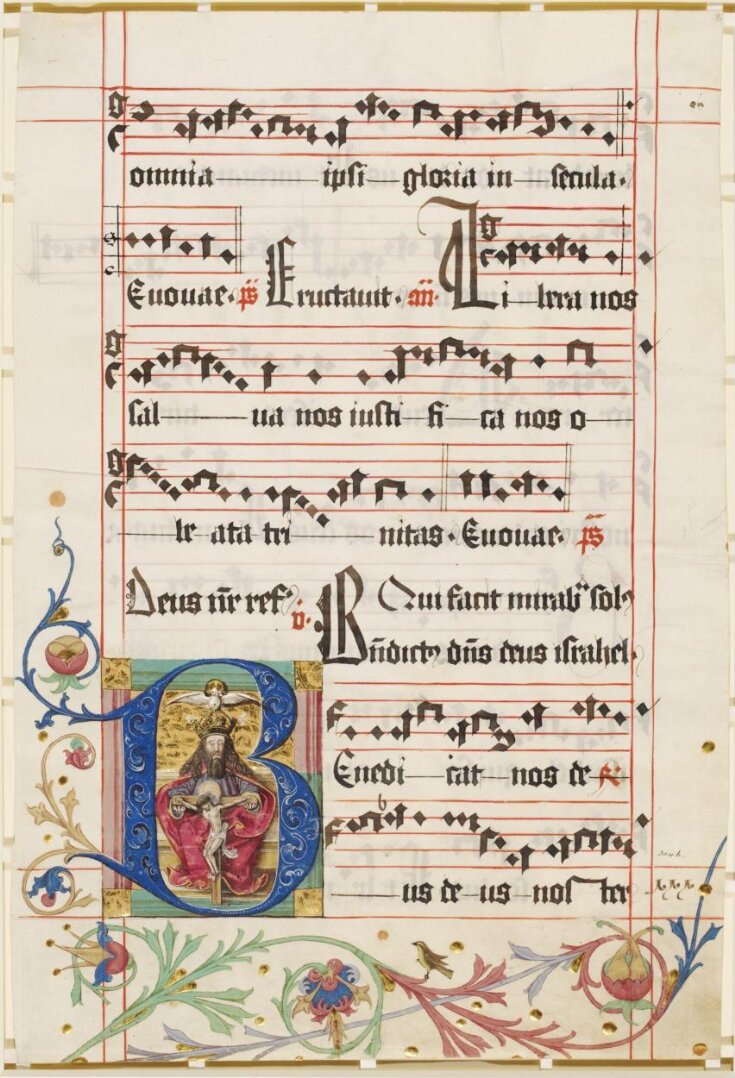 omnia ipsi gloria in secula.
Euouae. ps Eructauit. an Li bera nos
sal ua nos iusti fi ca nos o
be ata tri nitas. Euouae. ps
Deus nr ref v. Qui facit mirab sol
Bndictus dns deus israhel.
Enedi cat nos de R
us de us nos ter